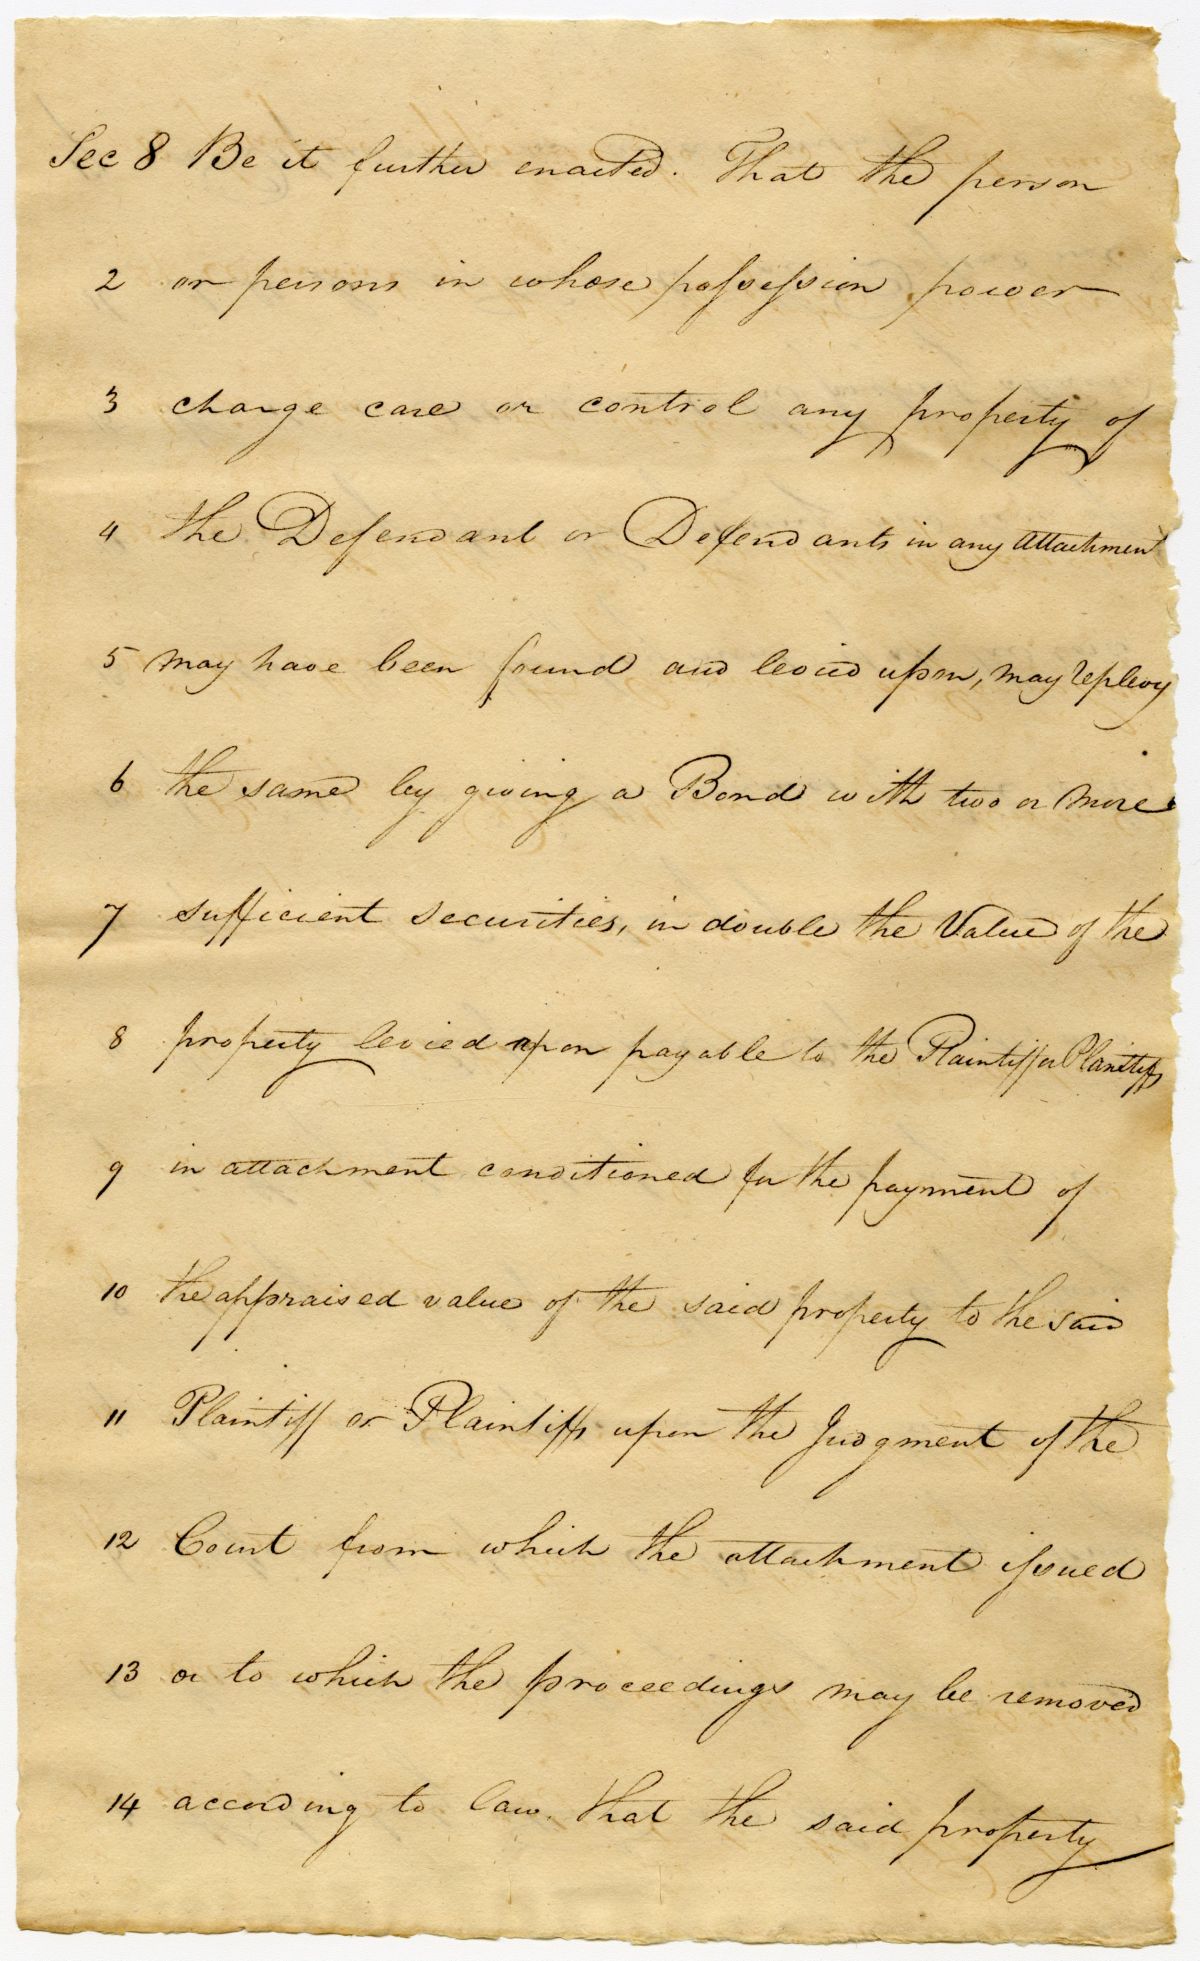 Sec 8 Be it further enacted. That the person
2 or persons in whose possession power
3 charge care or control any property of
4 the Defendant or Defendants in any attachment
5 may have been found and levied upon, may replevy
6 the same by giving a Bond with two or more
7 sufficient securities, in double the Value of the
8 property levied upon payable to the Plaintiff or Plaintiffs
9 in attachment conditioned for the payment of
10 the appraised value of the said property to the said
11 Plaintiff or Plaintiffs upon the Judgment of the
12 Court from which the attachment issued
13 or to which the proceedings may be removed
14 according to law. that the said property